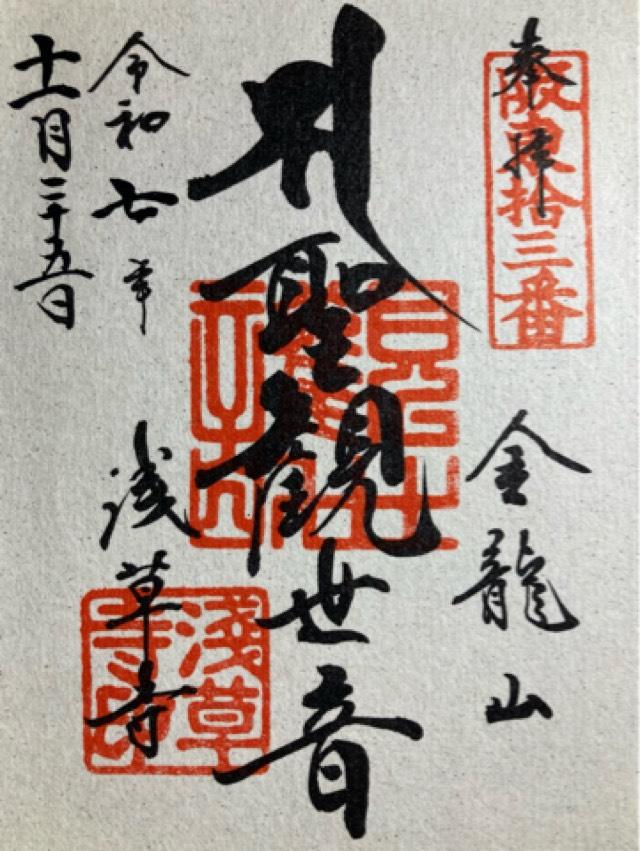 奉拝
坂東拾三番
金龍山
聖観世音
浅草寺
淺草寺印
令和七年
十一月二十五日